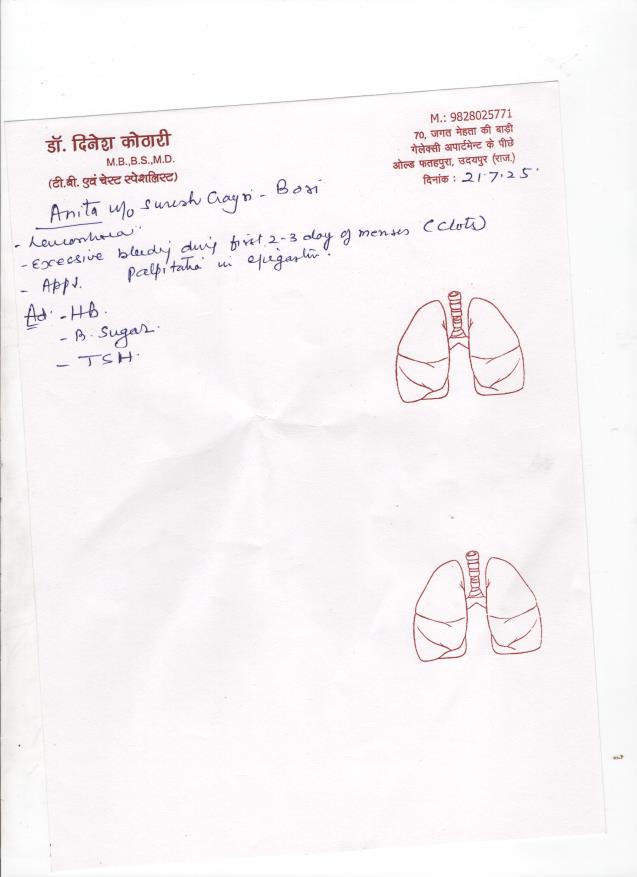 डॉ. दिनेश कोठारी
M.B.,B.S.,M.D.
(टी.बी. एवं चेस्ट स्पेशलिस्ट)
M.: 9828025771
70, जगत मेहता की बाड़ी
गेलेक्सी अपार्टमेन्ट के पीछे
ओल्ड फतहपुरा, उदयपुर (राज.)
दिनांक : 21.7.25.
Anita w/o Suresh - Bori
- Leucorrhoea
- Excessive bleeding during first 2-3 day of menses (clots)
- Appt. Palpitatn in epigastm.
Ad. - HB.
- B. Sugar.
- TSH.